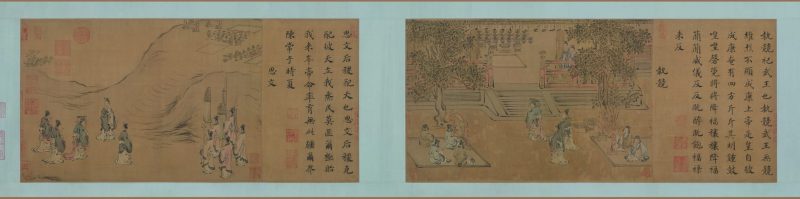 執競祀武王也執競武王無競
維烈不顯成康上帝是皇自彼
成康奄有四方斤斤其明鍾鼓
喤喤磬筦將將降福穰穰降福
簡簡威儀反反既醉既飽福祿
來反
執競
思文后稷配天也思文后稷克
配彼天立我烝民莫匪爾極貽
我來牟帝命率育無此疆爾界
陳常于時夏
思文